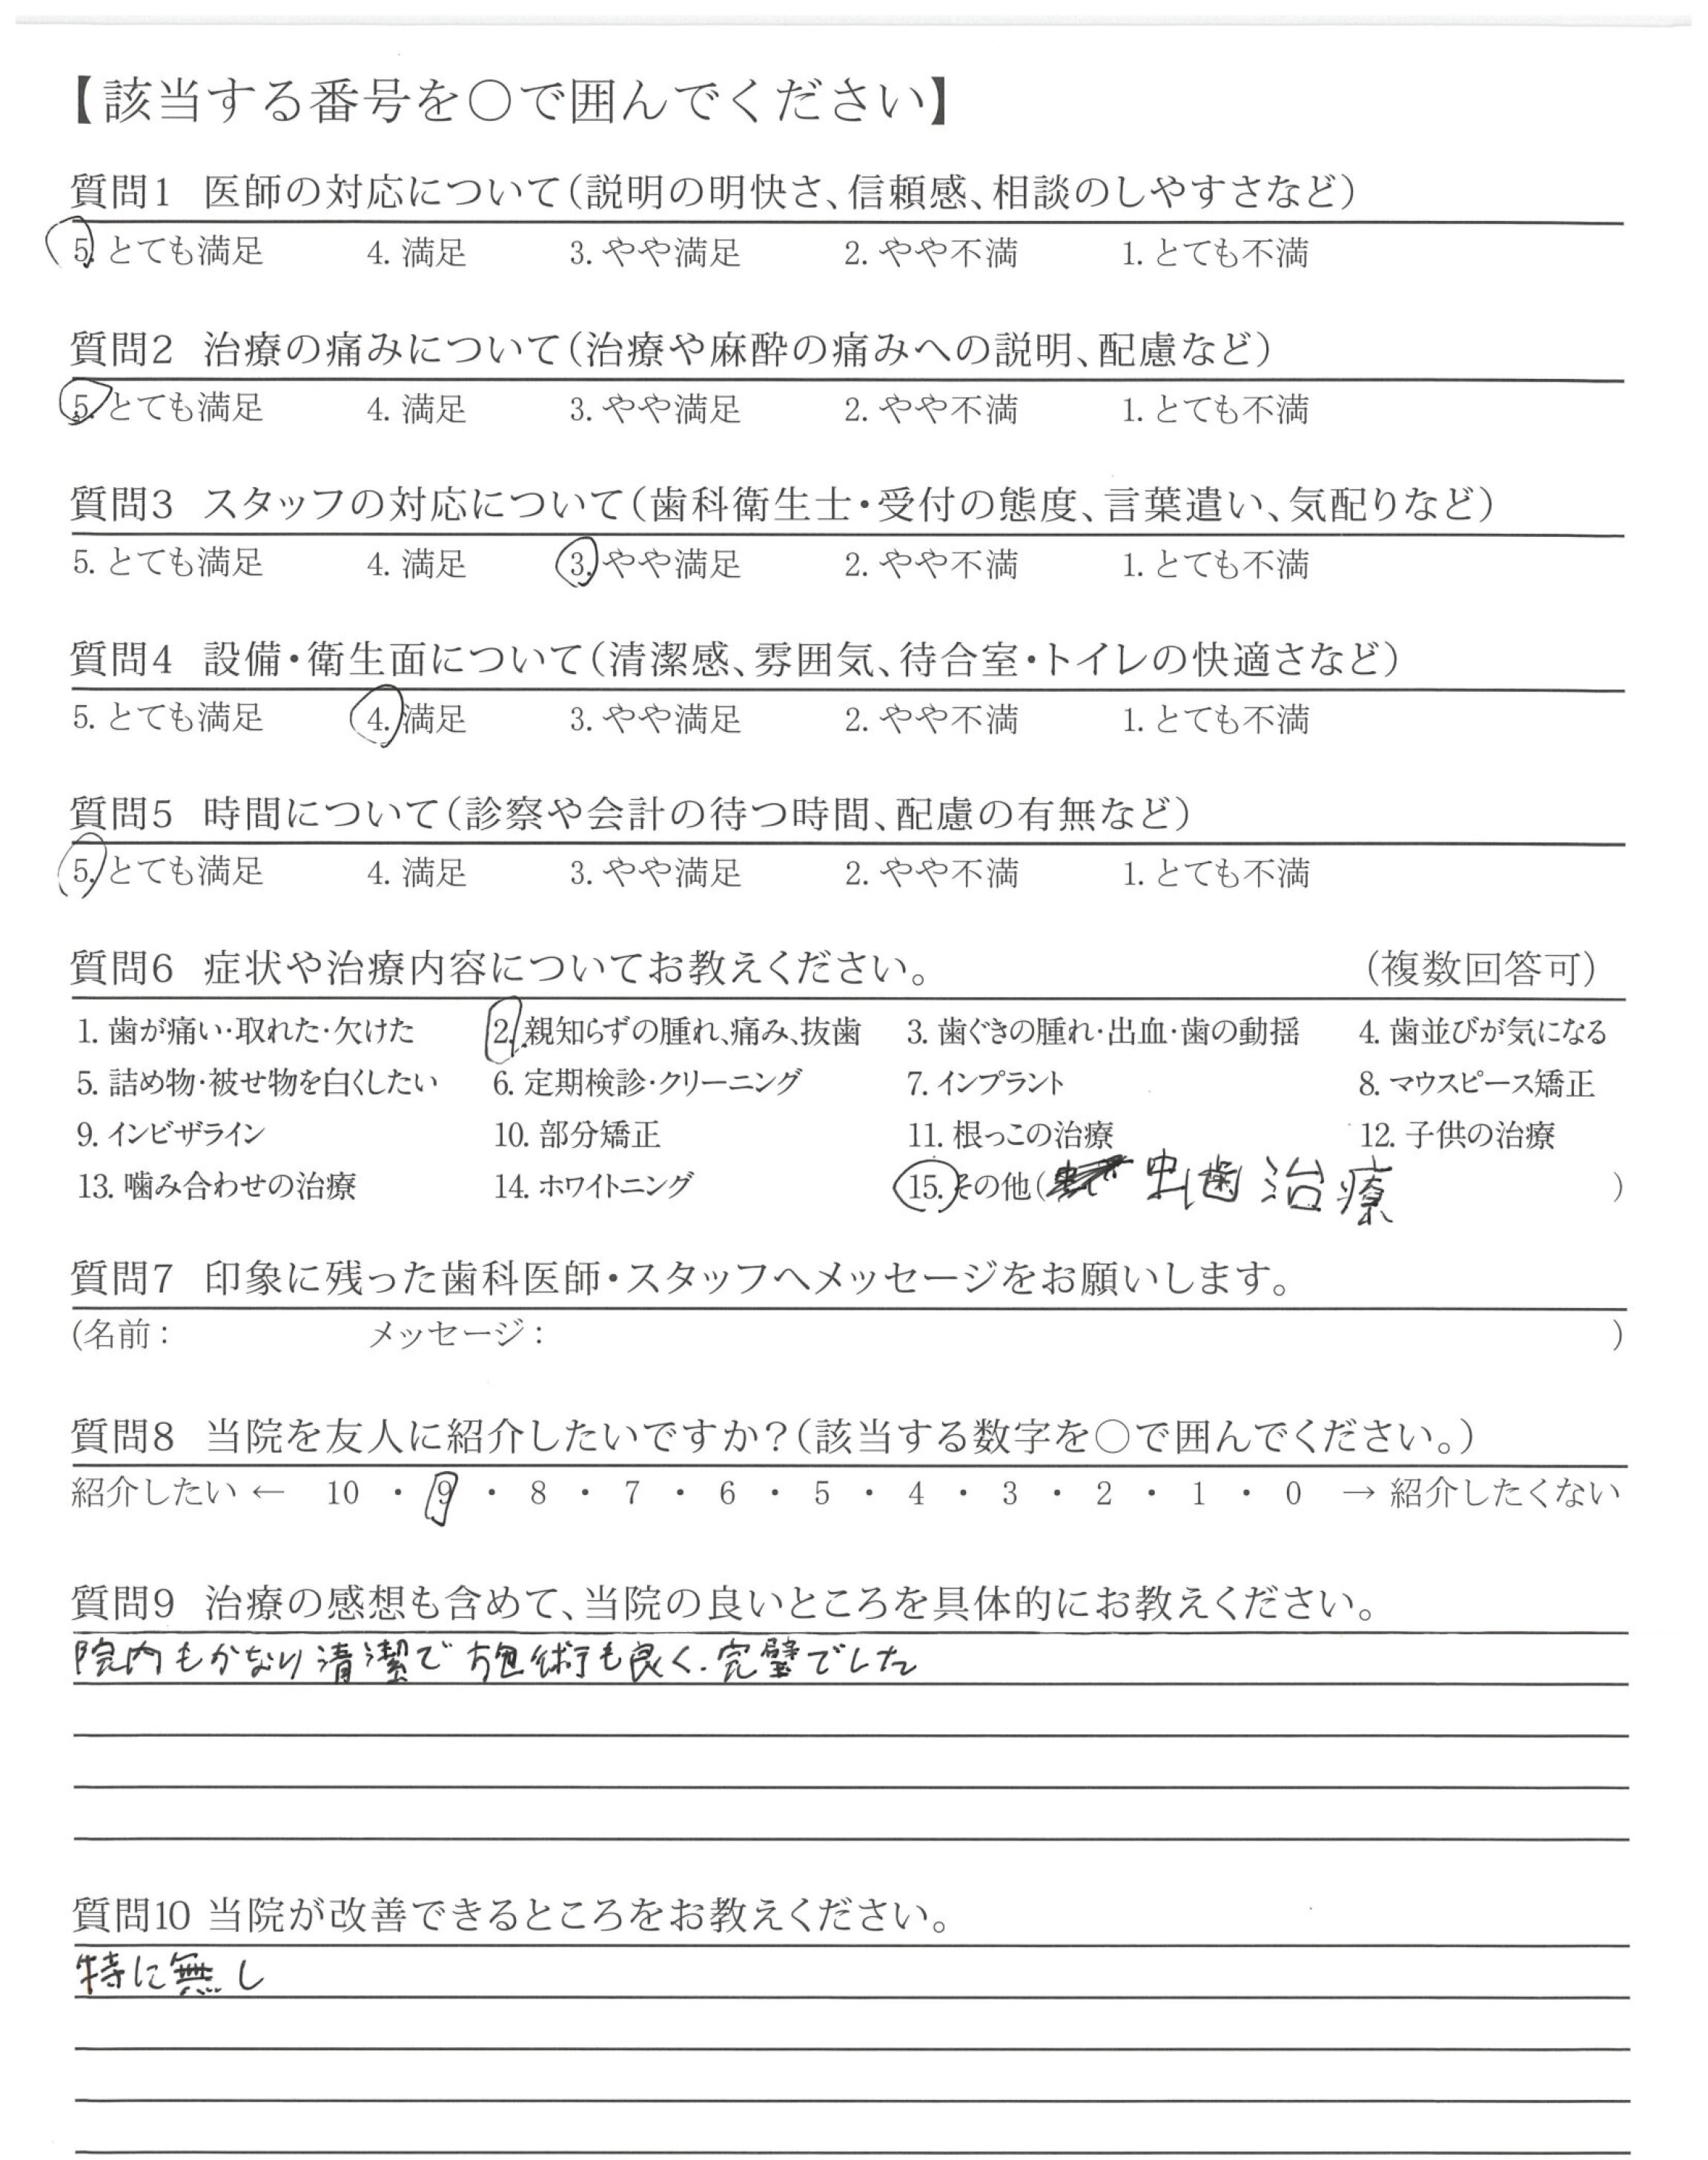 【該当する番号を〇で囲んでください】
質問1 医師の対応について(説明の明快さ、信頼感、相談のしやすさなど)
5. とても満足 4. 満足 3. やや満足 2. やや不満 1. とても不満
質問2 治療の痛みについて(治療や麻酔の痛みへの説明、配慮など)
5. とても満足 4. 満足 3. やや満足 2. やや不満 1. とても不満
質問3 スタッフの対応について(歯科衛生士・受付の態度、言葉遣い、気配りなど)
5. とても満足 4. 満足 3. やや満足 2. やや不満 1. とても不満
質問4 設備・衛生面について(清潔感、雰囲気、待合室・トイレの快適さなど)
5. とても満足 4. 満足 3. やや満足 2. やや不満 1. とても不満
質問5 時間について(診察や会計の待つ時間、配慮の有無など)
5. とても満足 4. 満足 3. やや満足 2. やや不満 1. とても不満
質問6 症状や治療内容についてお教えください。 (複数回答可)
1. 歯が痛い・取れた・欠けた 2. 親知らずの腫れ、痛み、抜歯 3. 歯ぐきの腫れ・出血・歯の動揺 4. 歯並びが気になる
5. 詰め物・被せ物を白くしたい 6. 定期検診・クリーニング 7. インプラント 8. マウスピース矯正
9. インビザライン 10. 部分矯正 11. 根っこの治療 12. 子供の治療
13. 噛み合わせの治療 14. ホワイトニング 15. その他( 虫歯治療 )
質問7 印象に残った歯科医師・スタッフへメッセージをお願いします。
(名前: メッセージ: )
質問8 当院を友人に紹介したいですか?(該当する数字を〇で囲んでください。)
紹介したい ← 10 ・ 9 ・ 8 ・ 7 ・ 6 ・ 5 ・ 4 ・ 3 ・ 2 ・ 1 ・ 0 → 紹介したくない
質問9 治療の感想も含めて、当院の良いところを具体的にお教えください。
院内もかなり清潔で施術も良く、完璧でした
質問10 当院が改善できるところをお教えください。
特に無し